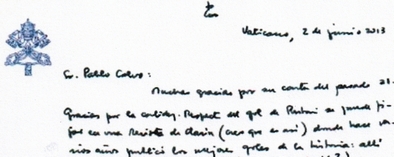 Vaticano, 2 de junio 2013
Sr. Pablo Calvo:
Muchas gracias por su carta del pasado 21.
Gracias por la Respecto del gol de Pontoni se puede fi-
jar en una Revista de Clarín (creo que es así) donde hace va-
rios años publicó los mejores goles de la historia: allí